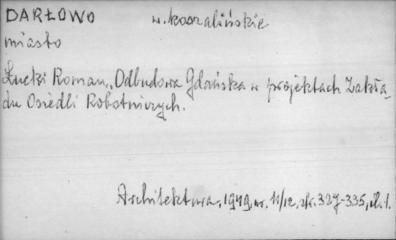 DARŁOWO w. koszalińskie
miasto
Łucki Roman, Odbudowa Gdańska w projektach Zakła
du Osiedli Robotniczych.
Architektura, 1949, nr. 11/12, str. 327-335, il. 1.